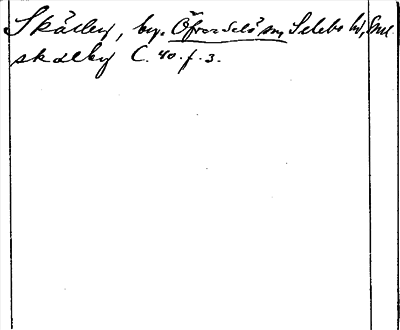 Skälby, by. Öfver Selö sn, Selebo hd, Sml.
skælby C. 40. f. 3.